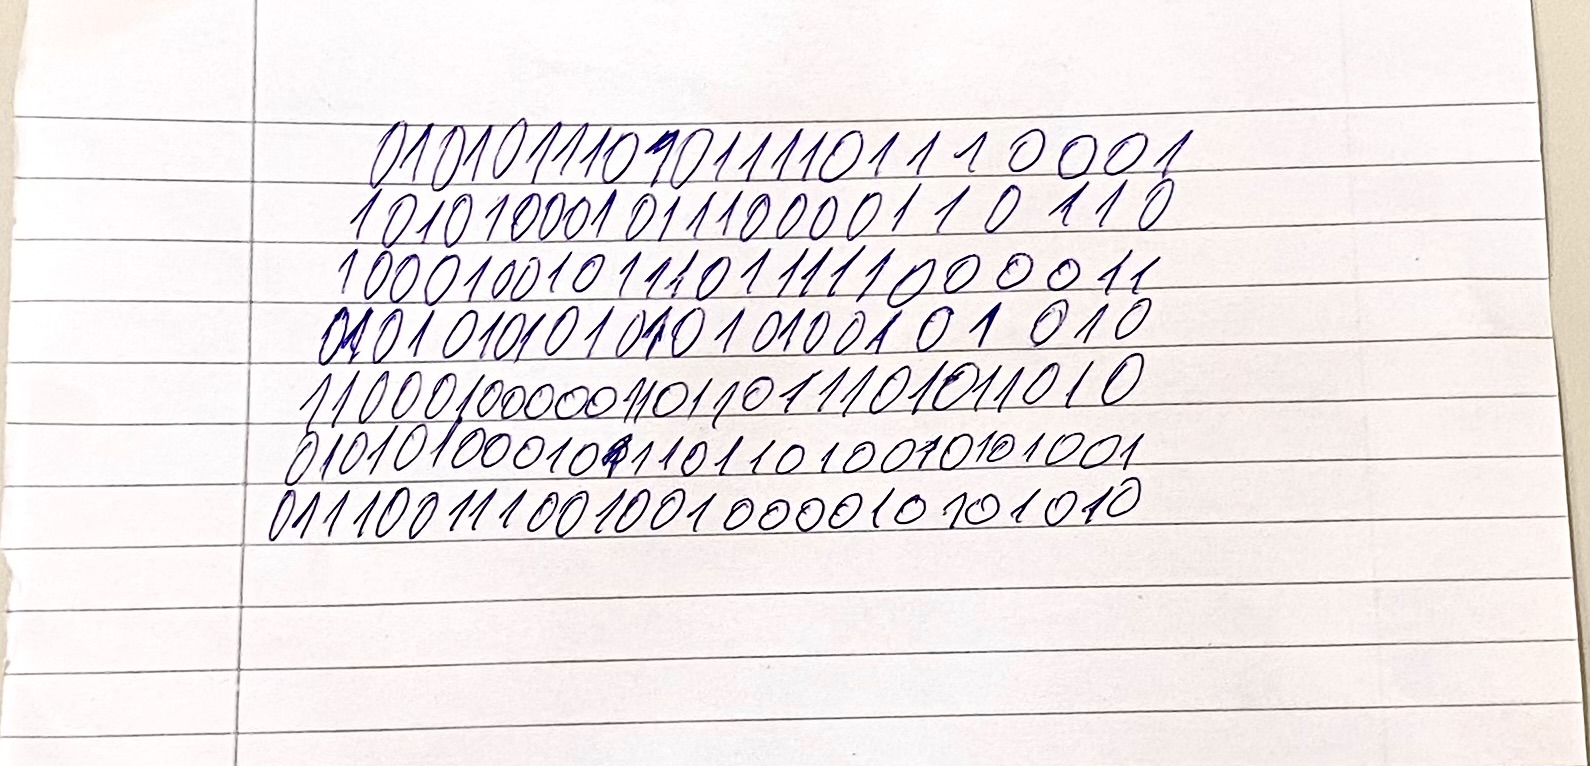 010101110101111011110001
1010100010111000011 0110
100010010111011111000011
010101010101010100101010
110001000001101101110101 1010
01010100010111011010010101001
011100111001001000010101010